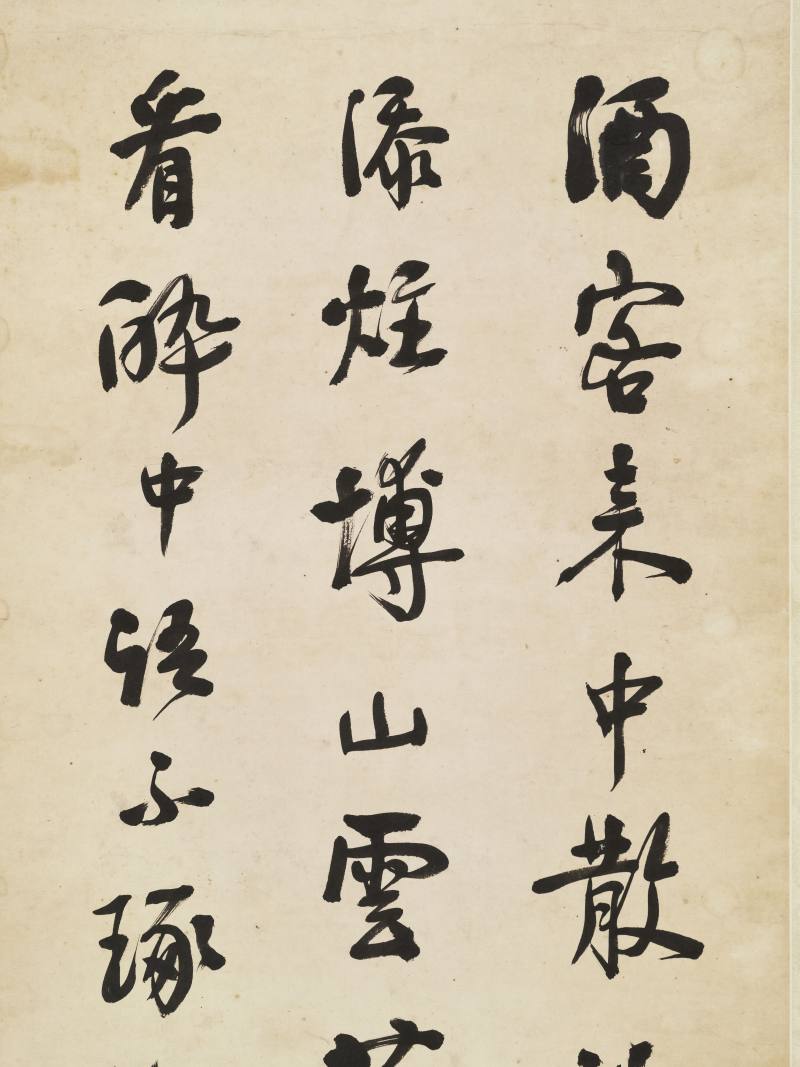 酒客來中散
添炷博山雲
看醉中語不琢